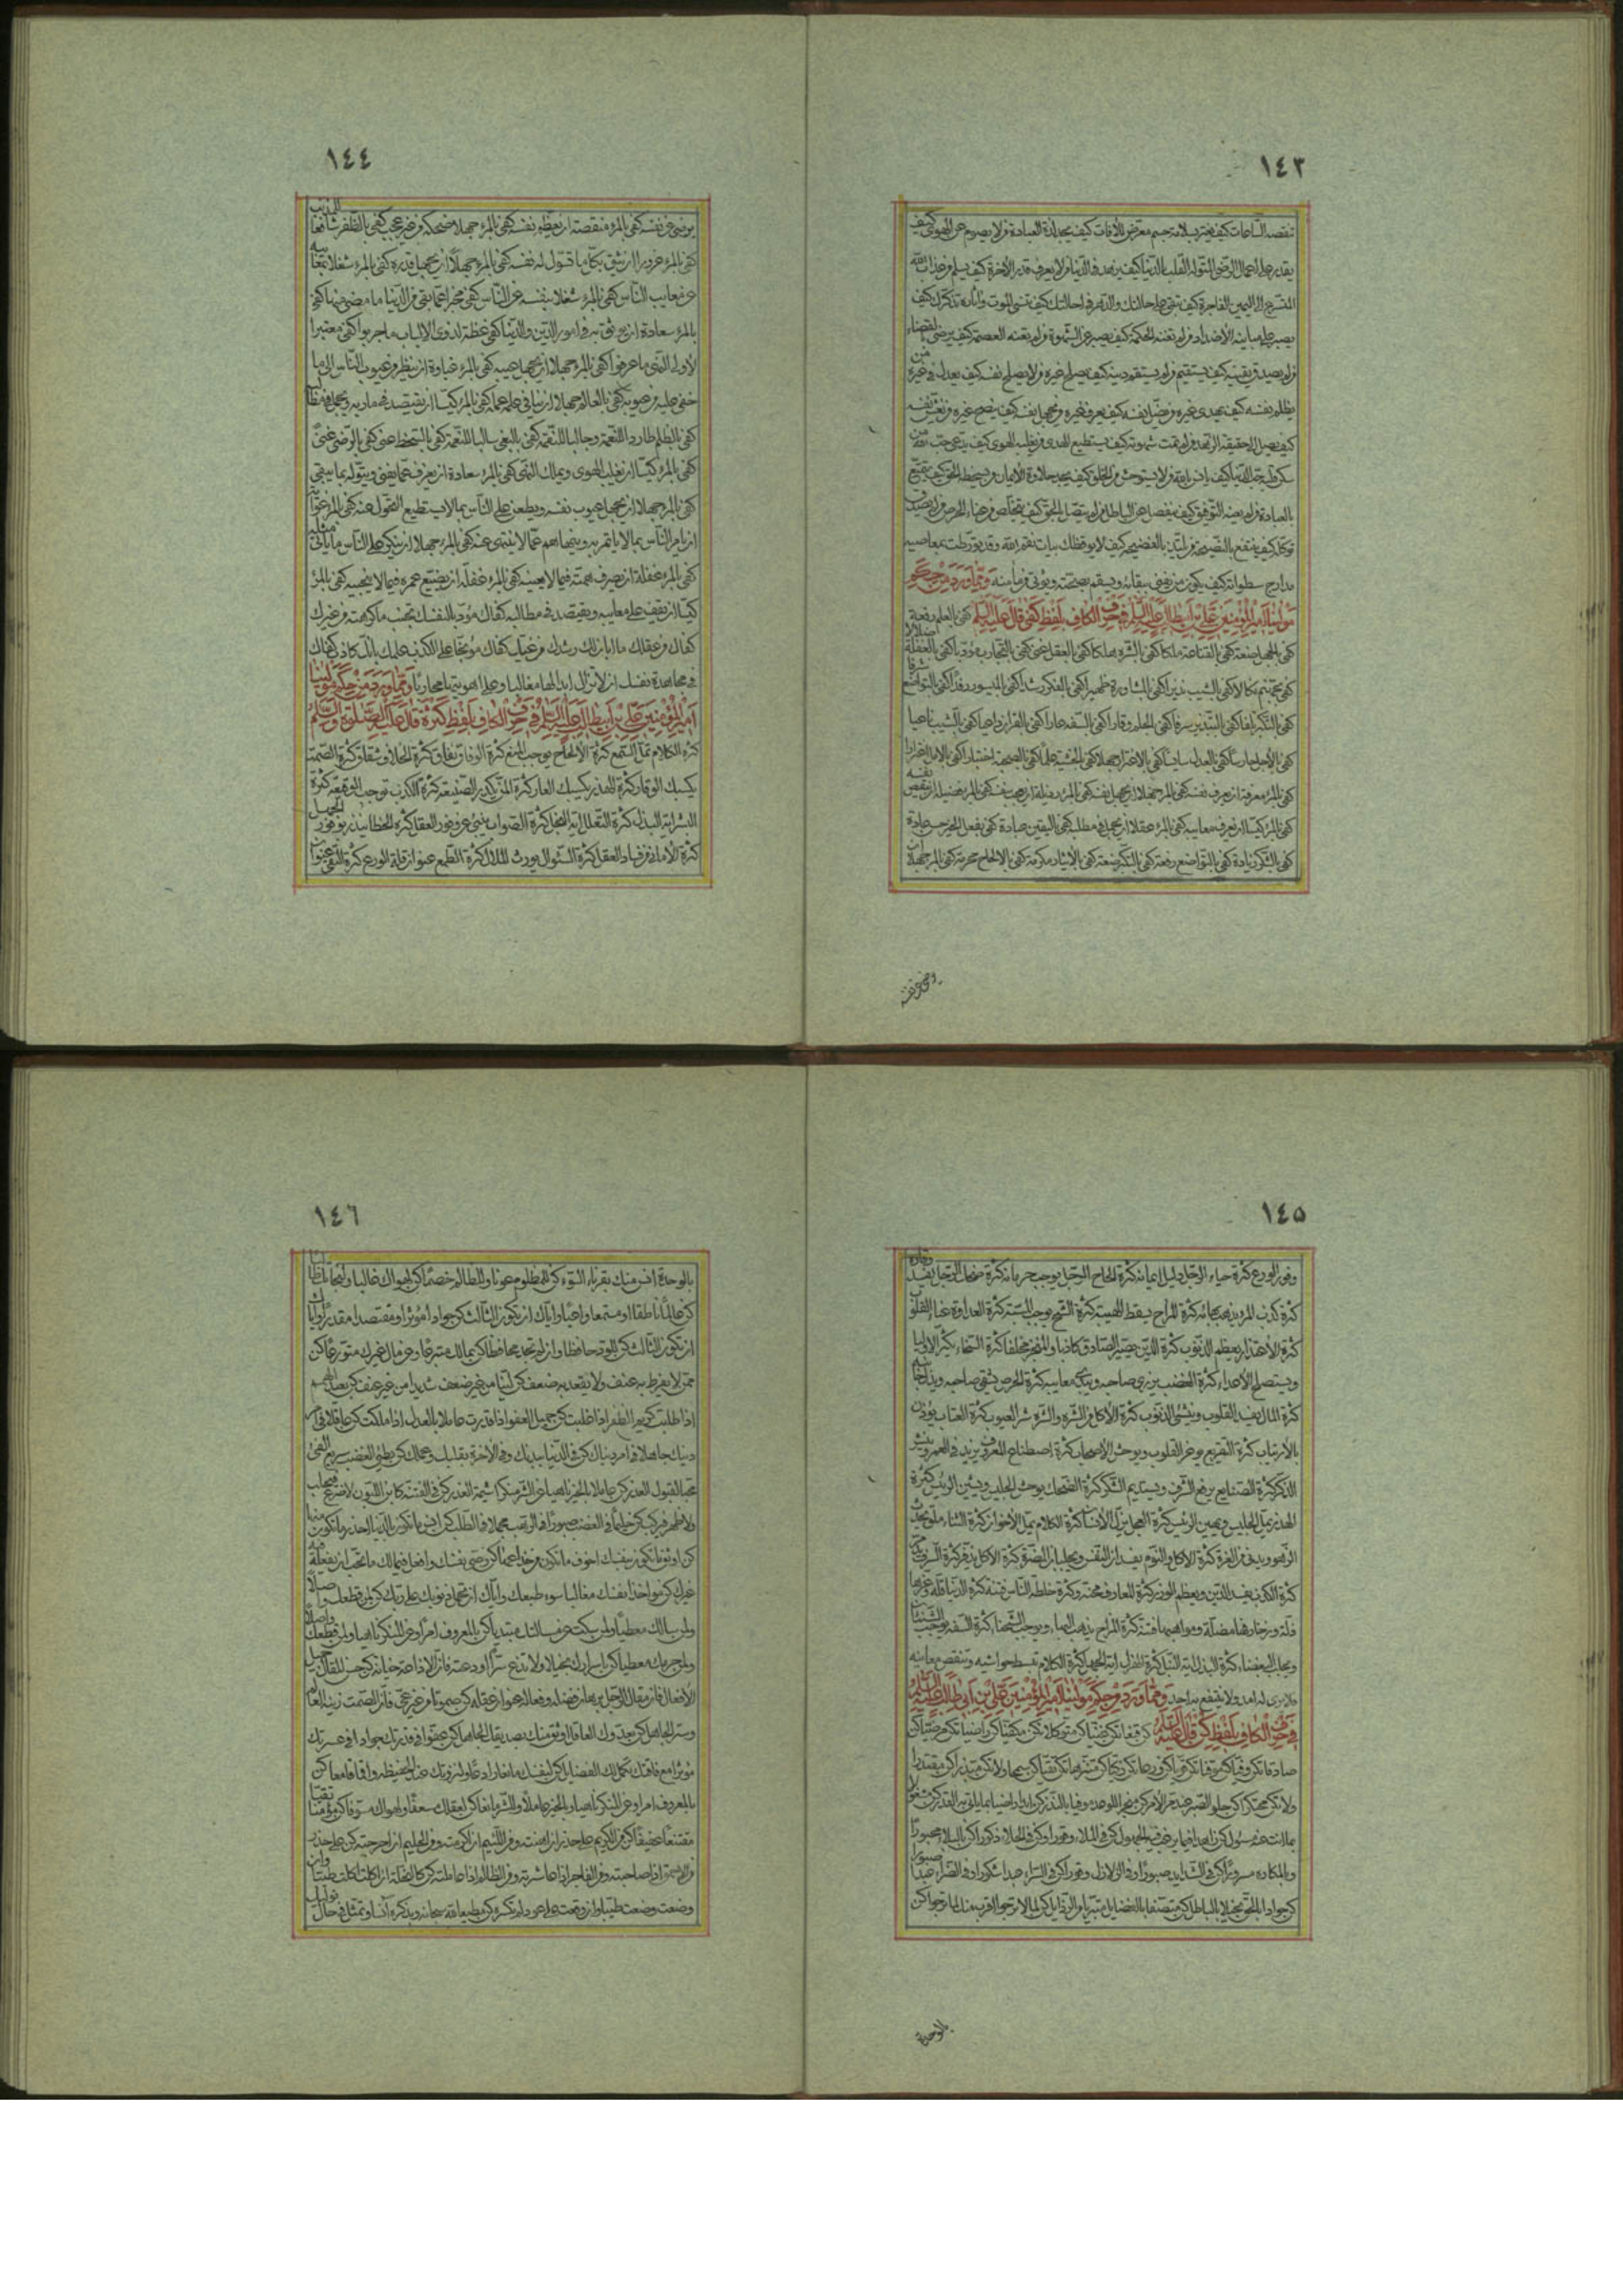 ١٤٣
تنقصه الساعات كيف يغتر بسلامة جسم معرض للآفات كيف يجد لذة العبادة من لا يصوم عن الهوى كيف
يقدر على اعمال الرضى القلب بالدنيا كيف يزهد في الدنيا من لا يعرف قدر الآخرة كيف يسلم من عذاب الله
المتسرع الى اليمين الفاجرة كيف تبقى على حالتك والدهر في احالتك كيف تنسى الموت وآثاره تذكرك كيف
يصبر على مباينة الأضداد من لم تعنه الحكمة كيف يصبر عن الشهوة من لم تعنه العصمة كيف يرضى بالقضاء
من لم يصدق يقينه كيف يستقيم من لم يستقم دينه كيف يصلح غيره من لا يصلح نفسه كيف يعدل في غيره من
يظلم نفسه كيف يهدى غيره من يضل نفسه كيف يعرف غيره من يجهل نفسه كيف ينصح غيره من يغش نفسه
كيف يصل الى حقيقة الزهد من لم تمت شهوته كيف يستطيع الهدى من يغلبه الهوى كيف يدعى حب الله من
سكن قلبه حب الدنيا كيف يانس بالله من لا يستوحش من الخلق كيف يجد حلاوة الأيمان من يسخط الحق كيف يتمتع
بالعبادة من لم يعنه التوفيق كيف ينفصل عن الباطل من لم يتصل بالحق كيف يتخلص من عناء الحرص من لم يصدق
توكله كيف ينتفع بالنصيحة من يلتذ بالفضيحة كيف لا يوقظك بيات نقم الله وقد تورطت بمعاصيه
مدارج سطواته كيف يكون من يفنى ببقائه ويسقم بصحته ويؤتى من مأمنه ومما ورد من حكم
مولينا امير المؤمنين علي بن ابي طالب عليه السلام في حرف الكاف بلفظ كفى قال عليه السلام كفى بالعلم رفعة
كفى بالجهل ضعة كفى بالقناعة ملكا كفى بالشره هلكا كفى بالعقل غنى كفى بالتجارب مؤدبا كفى بالغفلة ضلالا
كفى بجهنم نكالا كفى بالشيب نذيرا كفى بالمشاورة ظهيرا كفى بالفكر رشدا كفى بالميسور رفدا كفى بالتواضع شرفا
كفى بالتكبر تلفا كفى بالتبذير سرفا كفى بالحلم وقارا كفى بالسفه عارا كفى بالقرآن داعيا كفى بالشيب ناعيا
كفى بالأجل حارسا كفى بالعدل سايسا كفى بالاغترار جهلا كفى بالخشية علما كفى بالصحبة اختبارا كفى بالامل اغترارا
كفى بالمرء معرفة ان يعرف نفسه كفى بالمرء جهلا ان يجهل نفسه كفى بالمرء رذيلة ان يعجب بنفسه كفى بالمرء فضيلة ان ينقص نفسه
كفى بالمرء كيسا ان يعرف معايبه كفى بالمرء عقلا ان يجمل في مطالبه كفى باليقين عبادة كفى بفعل الخير حسن عادة
كفى بالشكر زيادة كفى بالتواضع رفعة كفى بالتكبر ضعة كفى بالأيثار مكرمة كفى بالالحاح محرمة كفى بالمرء جهلا ان
يرضى عن نفسه
١٤٤
يرضى عن نفسه كفى بالمرء منقصة ان يعظم نفسه كفى بالمرء جهلا ضحكه من غير عجب كفى بالظفر شافعا للمذنب
كفى بالمرء غرورا ان يثق بكل ما تسول له نفسه كفى بالمرء جهلا ان يجهل قدره كفى بالمرء شغلا بمعايبه
عن معايب الناس كفى بالمرء شغلا بنفسه عن الناس كفى مخبرا عما بقى من الدنيا ما مضى منها كفى
بالمرء سعادة ان يوثق به في امور الدين والدنيا كفى عظة لذوى الالباب ما جربوا كفى معتبرا
لأولى النهى ما عرفوا كفى بالمرء جهلا ان يجهل عيبه كفى بالمرء غباوة ان ينظر من عيوب الناس الى ما
خفى عليه من عيوبه كفى بالعالم جهلا ان ينافى علمه عمله كفى بالمرء كيسا ان يقتصد في مآربه ويجمل في مطالبه
كفى بالظلم طاردا للنعمة وجالبا للنقمة كفى بالبغى سالبا للنعمة كفى بالسخط عناء كفى بالرضى غنى
كفى بالمرء كيسا ان يغلب الهوى ويملك النهى كفى بالمرء سعادة ان يعزف عما يفنى ويتوله بما يبقى
كفى بالمرء جهلا ان يجهل عيوب نفسه ويطعن على الناس بما لا يستطيع التحول عنه كفى بالمرء غواية
ان يامر الناس بما لا ياتمر به وينهاهم عما لا ينتهى عنه كفى بالمرء جهلا ان ينكر على الناس ما ياتى مثله
كفى بالمرء غفلة ان يصرف همته فيما لا يعنيه كفى بالمرء غفلة ان يضيع عمره فيما لا ينجيه كفى بالمرء
كيسا ان يقف على معايبه ويقتصد في مطالبه كفاك مؤدبا لنفسك تجنب ما كرهته من غيرك
كفاك من عقلك ما ابان لك رشدك من غيك كفاك موبخا على الكذب علمك بانك كاذب كفاك
في مجاهدة نفسك ان لا تزال ابدا لها مغالبا وعلى اهويتها محاربا ومما ورد من حكم مولينا
امير المؤمنين علي بن ابي طالب عليه السلام في حرف الكاف بلفظ كثرة قال عليه الصلوة والسلام
كثرة الكلام تمل السمع كثرة الالحاح يوجب المنع كثرة الوفاق نفاق كثرة الخلاف شقاق كثرة الصمت
يكسبك الوقار كثرة الهذر يكسبك العار كثرة المن يكدر الصنيعة كثرة الكذب توجب الوقيعة كثرة
البشر آية البذل كثرة التعلل آية البخل كثرة الصواب ينبئ عن وفور العقل كثرة الخطا ينذر بوفور الجهل
كثرة الأمانى من فساد العقل كثرة السئوال يورث الملال كثرة الطمع عنوان قلة الورع كثرة التقى عنوان
١٤٥
وفور الورع كثرة حياء الرجل دليل ايمانه كثرة الحاح الرجل يوجب حرمانه كثرة ضحك الرجل يفسد وقاره
كثرة كذب المرء يذهب بهائه كثرة المزاح يسقط الهيبة كثرة الشح يوجب المسبة كثرة العداوة عناء القلوب
كثرة الأعتذار يعظم الذنوب كثرة الدين يصير الصادق كاذبا والمنجز مخلفا كثرة السخاء يكثر الاولياء
ويستصلح الأعداء كثرة الغضب يزرى صاحبه ويبدى معايبه كثرة الحرص يشقى صاحبه ويذل جانبه
كثرة المال يفسد القلوب وينشئ الذنوب كثرة الأكل من الشره والشره شر العيوب كثرة العتاب يؤذن
بالأرتياب كثرة التقريع يوغر القلوب ويوحش الأصحاب كثرة اصطناع المعروف يزيد في العمر وينشر
الذكر كثرة الصنايع يرفع الشرف ويستديم الشكر كثرة الضحك يوحش الجليس ويشين الرئيس كثرة
الهذر يمل الجليس ويهين الرئيس كثرة العجل يزل الأنسان كثرة الكلام يمل الأخوان كثرة الثناء ملق يحدث
الزهو ويدنى من الغرة كثرة الأكل والنوم يفسدان النفس ويجلبان المضرة كثرة الاكل يذفر كثرة السرف يدمر
كثرة الكذب يفسد الدين ويعظم الوزر كثرة المعارف محنة وكثرة خلطة الناس فتنة كثرة الدنيا قلة وعزها
ذلة وزخارفها مضلة ومواهبها فتنة كثرة المزاح يذهب البهاء ويوجب الشحناء كثرة السفه يوجب الشنئان
ويجلب البغضاء كثرة البذل آية النبل كثرة الهزل آية الجهل كثرة الكلام تبسط حواشيه وتنقص معانيه
فلا يرى له امد ولا ينتفع به احد ومما ورد من حكم مولينا امير المؤمنين علي بن ابي طالب عليه السلام
في حرف الكاف بلفظ كن قال عليه السلام كن قنعا تكن غنيا كن متوكلا تكن مكفيا كن راضيا تكن مرضيا كن
صادقا تكن وفيا كن موقنا تكن قويا كن ورعا تكن زكيا كن متنزها تكن تقيا كن سمحا ولا تكن مبذرا كن مقتدرا
ولا تكن محتكرا كن حلو الصبر عند مر الأمر كن منجزا للوعد موفيا بالنذر كن ابدا راضيا بما يأتى به القدر كن مشغولا
بما انت عنه مسئول كن زاهدا فيما يرغب فيه الجهول كن في الملاء وقورا وكن في الخلاء ذكورا كن بالبلاء محبورا
وبالمكاره مسرورا كن في الشدايد صبورا وفي الزلازل وقورا كن في السراء عبدا شكورا وفي الضراء عبدا صبورا
كن جوادا بالحق بخيلا بالباطل كن متصفا بالفضايل متبريا من الرذايل كن لما لا ترجو اقرب منك لما ترجو كن
بالوحدة
١٤٦
بالوحدة آنس منك بقرناء السوء كن للمظلوم عونا وللظالم خصما كن لهواك غالبا ولنجاتك طالبا
كن عالما ناطقا او مستمعا واعيا واياك ان تكون الثالث كن جوادا مؤثرا او مقتصدا مقدرا واياك
ان تكون الثالث كن للود حافظا وان لم تجد محافظا كن بمالك متبرعا وعن مال غيرك متورعا كن
ممن لا يفرط به عنف ولا يقعد به ضعف كن لينا من غير ضعف شديدا من غير عنف كن بعيد الهمم
اذا طلبت كريم الظفر اذا غلبت كن جميل العفو اذا قدرت عاملا بالعدل اذا ملكت كن عاقلا في امر
دينك جاهلا في امر دنياك كن في الدنيا ببدنك وفي الآخرة بقلبك وعملك كن بطئ الغضب سريع الفئ
محبا لقبول العذر كن عاملا بالخير ناهيا عن الشر منكرا شيمة الغدر كن في الفتنة كابن اللبون لا ضرع فيحلب
ولا ظهر فيركب كن حليما في الغضب صبورا في الرهب مجملا في الطلب كن آنس ما تكون بالدنيا احذر ما تكون منها
كن اوثق ما تكون بنفسك اخوف ما تكون من خداعها كن وصى نفسك وافعل في مالك ما تحب ان يفعله فيه
غيرك كن مواخذا نفسك مغالبا سوء طبعك واياك ان تحمل ذنوبك على ربك كن لمن قطعك واصلا
ولمن سالك معطيا ولمن سكت عن مسألتك مبتديا كن بالمعروف آمرا وعن المنكر ناهيا ولمن قطعك واصلا
ولمن حرمك معطيا كن باسرارك بخيلا ولا تذع سرا اودعته فان الاذاعة خيانة كن حسن المقال جميل
الأفعال فان مقال الرجل برهان فضله وفعاله عنوان عقله كن صموتا من غير عى فان الصمت زينة العالم
وستر الجاهل كن بعدوك العاقل اوثق منك بصديقك الجاهل كن عفوا في قدرتك جوادا في عسرتك
مؤثرا مع فاقتك تكمل لك الفضايل كن لنفسك مانعا رادعا ولنزوتك عند الحفيظة واقما قامعا كن
بالمعروف آمرا وعن المنكر ناهيا وبالخير عاملا وللشر مانعا كن لعقلك مسعفا ولهواك مسوفا كن مؤمنا تقيا
متقنعا عفيفا كن من الكريم على حذر ان اهنته ومن اللئيم ان اكرمته ومن الحليم ان احرجته كن على حذر
من الاحمق اذا صاحبته ومن الفاجر اذا عاشرته ومن الظالم اذا عاملته كن كالنحلة ان اكلت اكلت طيبا وان
وضعت وضعت طيبا وان وقعت على عود لم تكسره كن مطيعا لله سبحانه وبذكره آنسا وتمثل في حال توليك